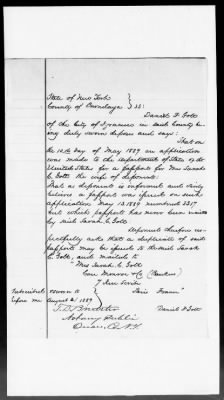 State of New York
County of Onondaga } SS:
Daniel F. Gott
of the City of Syracuse in said County be-
ing duly sworn deposes and says:
That on
the 10th day of May 1889 an application
was made to the Department of State of the
United States for a passport for Mrs Sarah
C. Gott the wife of deponent:
That as deponent is informed and verily
believes a passport was issued on such
application May 13, 1889 numbered 3317
but which passport has never been received
by said Sarah C. Gott
Deponent therefore res-
pectfully asks that a duplicate of said
passport may be issued to the said Sarah
C. Gott, and mailed to
"Mrs Sarah C. Gott
Care Munroe & Co. (Bankers)
7 Rue Scribe
Paris France"
Subscribed & sworn to
before me August 2, 1889
Daniel F Gott
Notary Public